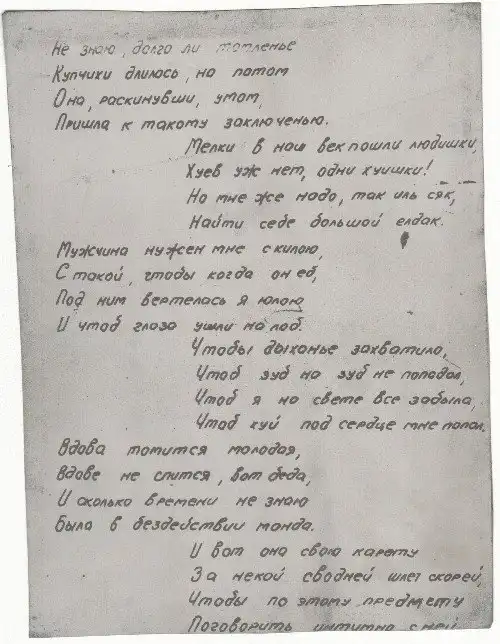 Не знаю, долго ли томленье
Купчихи длилось, но потом
Она, раскинувши, умом,
Пришла к такому заключенью.
Мелки в наш век пошли людишки,
Хуев уж нет, одни хуишки!
Но мне же надо, так иль сяк,
Найти себе большой елдак.
Мужчина нужен мне с килою,
С такой, чтобы когда он еб,
Под ним вертелась я юлою
И чтоб глаза ушли на лоб.
Чтобы дыханье захватило,
Чтоб зуб на зуб не попадал,
Чтоб я на свете все забыла,
Чтоб хуй под сердце мне попал.
Вдова томится молодая,
Вдове не спится, вот беда,
И сколько времени не знаю
Была в бездействии манда.
И вот она свою карету
За некой сводней шлет скорей,
Чтобы по этому предмету
Поговорить интимно с ней